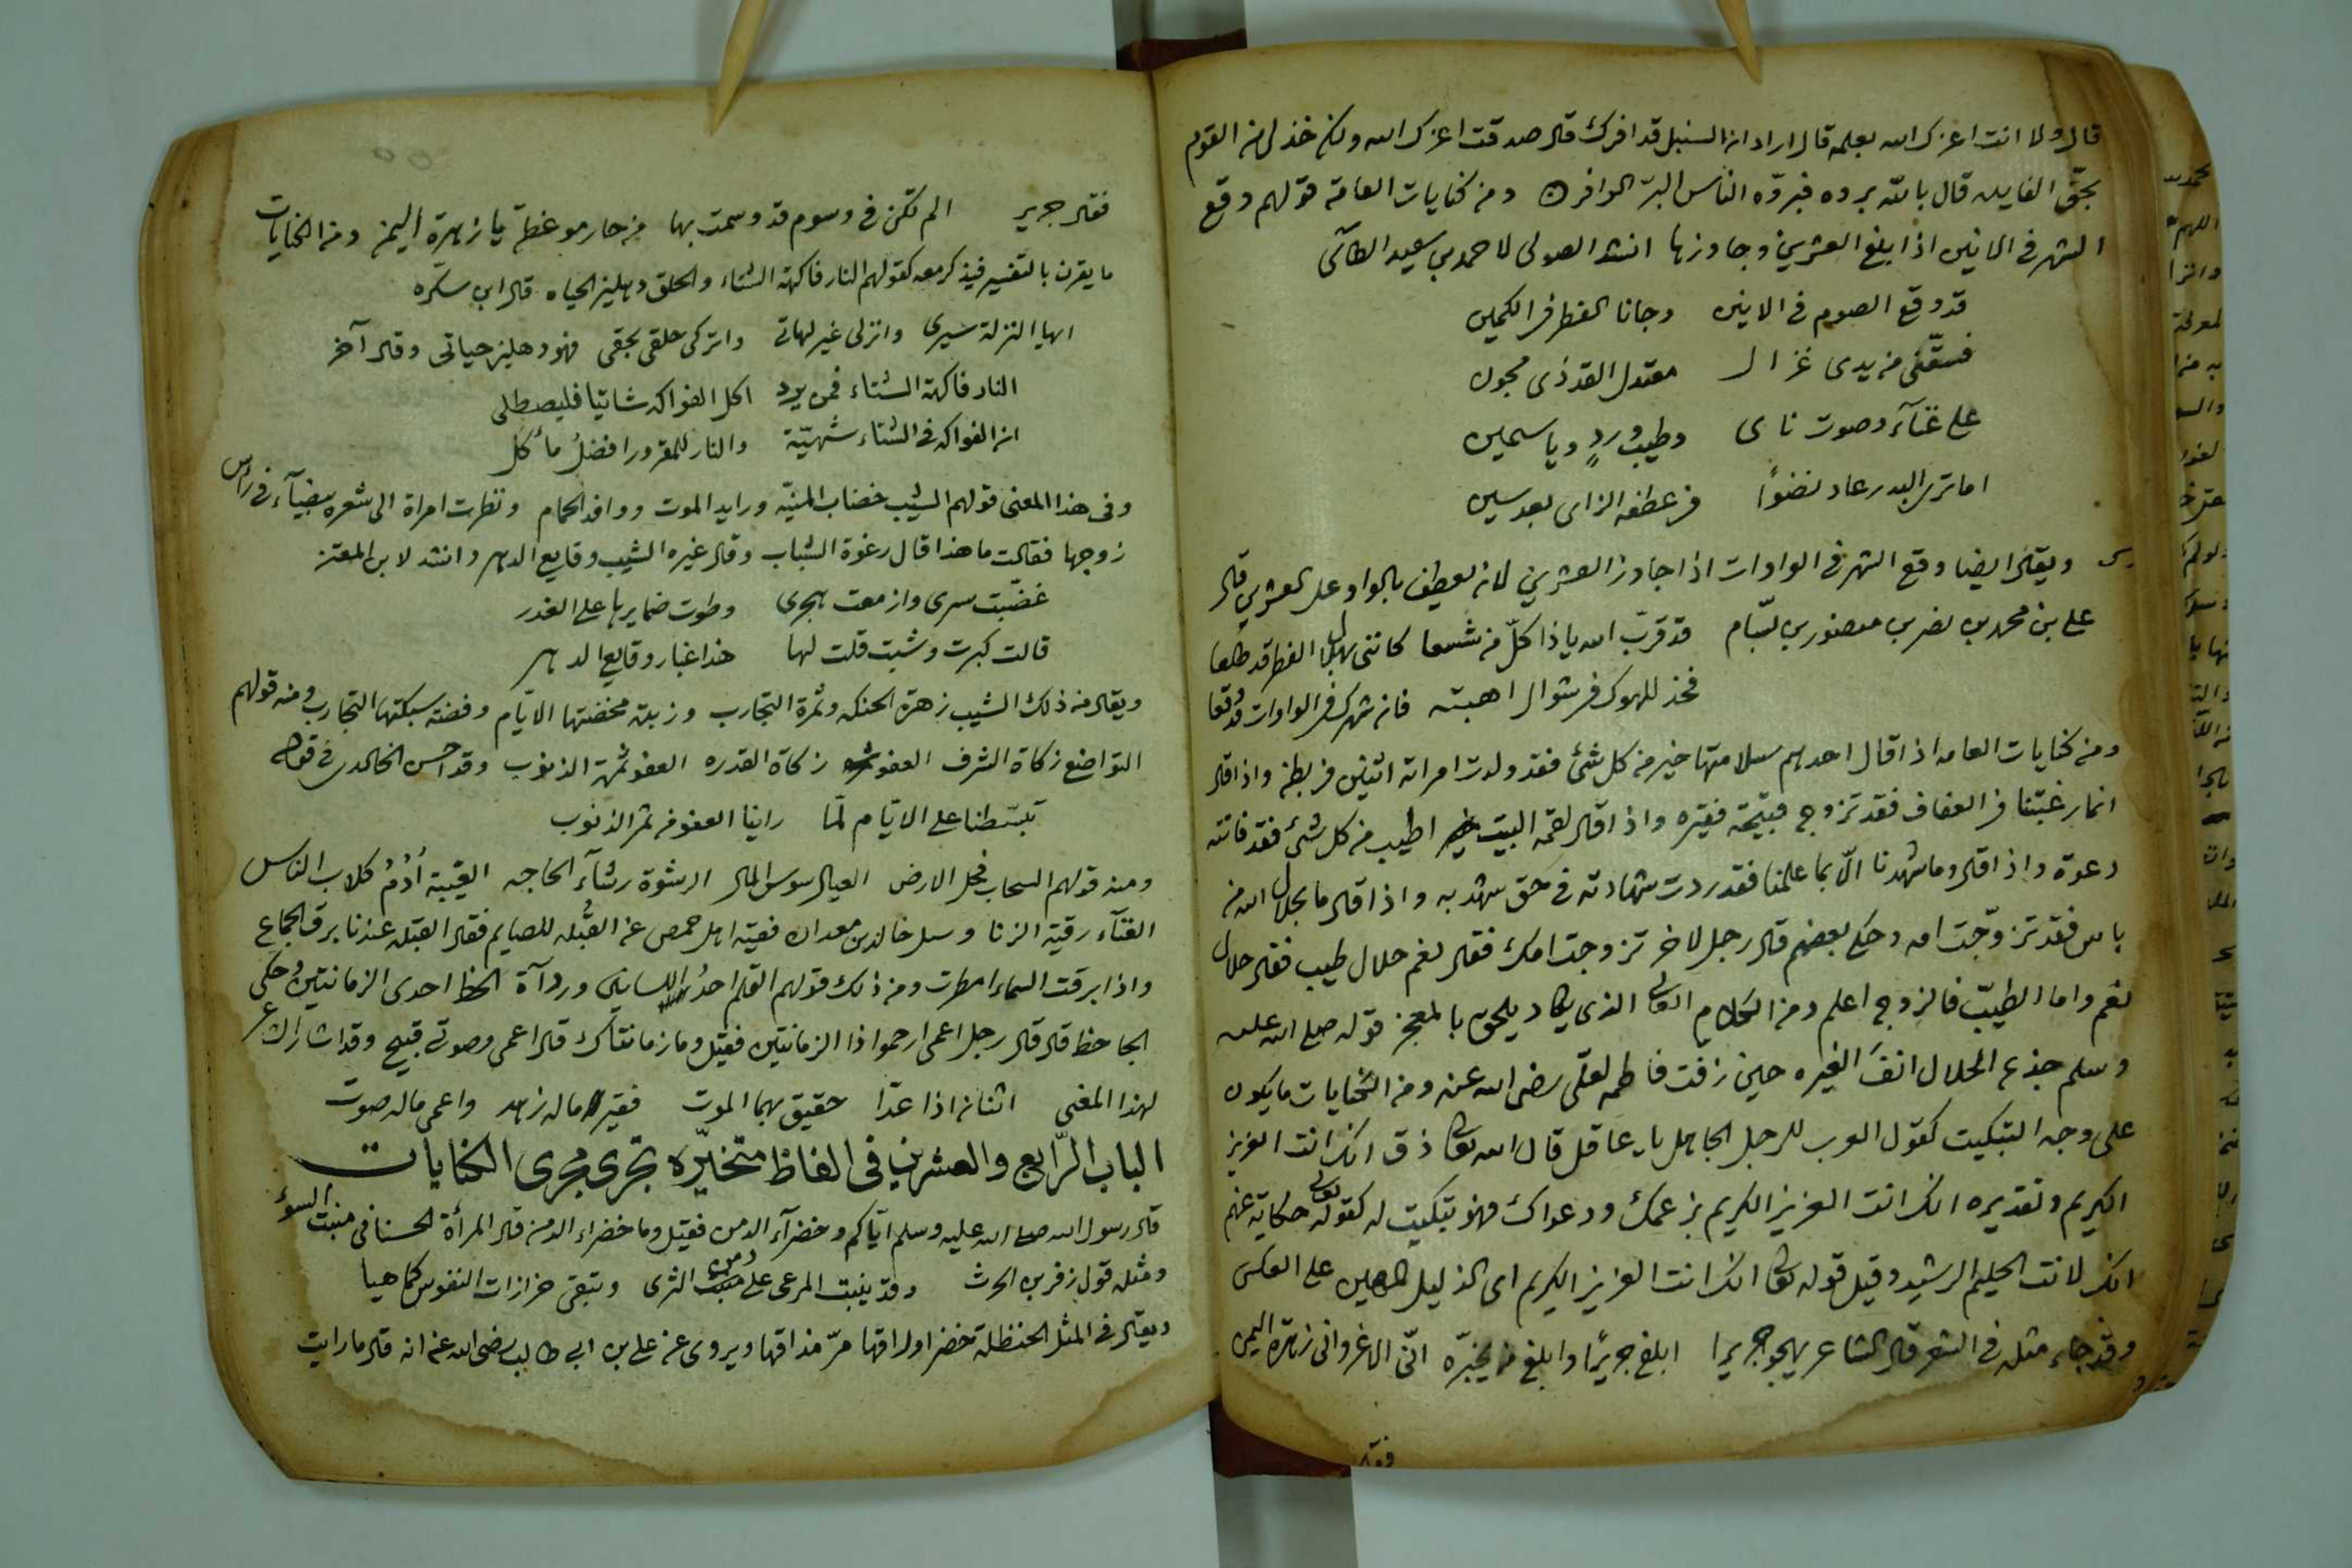 قال ولا انت اعزك الله بعلمه قال اراد ان السنبل قد افرك قال صدقت اعزك الله ولكن خذ لى من القوم
بحق الفايده قال بالله بروه فبروه الناس البر الوافر ومن كنايات العامة قولهم وقع
الشهر فى الانين اذا بلغ العشرين وجاوزها انشد الصولى لاحمد بن سعيد الطآئى
قد وقع الصوم فى الانين وجانا الفطر فى الكمين
فسقّنى من يدى غزال معتدل القد ذى مجون
على غنآء وصوت ناى وطيب وردٍ وياسمين
اما ترى البدر عاد نضوًا فى عطفه الزاى بعد سين
ويقال ايضا وقع الشهر فى الواوات اذا جاوز العشرين لانه يعطف بالواو على العشرين قال
على بن محمد بن نصر بن منصور بن بسّام قد قرّب الله ياذا كلّ من شسعا كاننى بهلال الفطر قد طلعا
فخذ للهوك فى شوال اهبته فان شهرك فى الواوات قد وقعا
ومن كنايات العامه اذا قال احدهم سلامتها خير من كل شئ فقد ولدت امراته اثنين فى بطن واذا قال
انما رغبتنا فى العفاف فقد تزوج قبيحة فقيره واذا قال لقمة البيت اطيب من كل شئ فقد فاتته
دعوة واذا قال وما شهدنا الّا بما علمنا فقد ردت شهادته فى حق شهد به واذا قال ما بحلال الله من
باس فقد تزوّجت امه وحكى بعضهم قال رجل لاخر تزوجت امك فقال نعم حلال طيب فقال حلال
نعم واما الطيّب فالزوج اعلم ومن الكلام الذى يكاد يلحق بالمعجز قوله صلى الله عليه
وسلم جذع الحلال انفَ الغيره حين زفت فاطمه لعلى رضى الله عنه ومن الكنايات ما يكون
على وجه التبكيت كقول العرب للرجل الجاهل يا عاقل قال الله تعالى ذق انك انت العزيز
الكريم وتقديره انك انت العزيز الكريم بزعمك ودعواك فهو تبكيت له كقوله تعالى حكاية عنهم
انك لانت الحليم الرشيد وقيل قوله تعالى انك انت العزيز الكريم اى الذليل المهين على العكس
وقد جاء مثله فى الشعر قال الشاعر يهجو جريرا ابلغ جريرًا وابلغ من يخبّره انّى الاغر وانى زهرة اليمن
فقال
فقال جرير الم تكن فى وسوم قد وسمت بها من حار موعظة يا زهرة اليمن ومن الكنايات
ما يقرن بالتفسير فيذكر معه كقولهم النار فاكهة الشتاء والحلق دهليز الحياه قال ابن سكّره
ايها النزلة سيرى وانزلى غير لهاتى واتركى حلقى بحقى فهو دهليز حياتى وقال آخر
النار فاكهة الشتاء فمن يرد اكل الفواكه شاتيا فليصطلى
ان الفواكه فى الشتاء شهيّة والنار للمقرور افضل مأكل
وفى هذا المعنى قولهم الشيب خضاب المنيّه ورايد الموت ووافد الحمام ونظرت امراة الى شعره بيضآء فى راس
زوجها فقالت ما هذا قال رغوة الشباب وقال غيره الشيب وقايع الدهر وانشد لابن المعتز
غضبت سرى وازمعت هجرى وطوت ضمايرها على الغدر
قالت كبرت وشبت قلت لها هذا غبار وقايع الدهر
ويقال من ذلك الشيب زهرة الحنكه وثمرة التجارب وزبدة مخضتها الايّام وفضته سبكتها التجارب ومنه قولهم
التواضع زكاة الشرف العفو زكاة القدره العفو ثمرة الذنوب وقد احسن الخالدى فى قوله
تبسّطنا على الايّام لمّا راينا العفو من ثمر الذنوب
ومنه قولهم السحاب فحل الارض العيال سوس المال الرشوة رشآء الحاجه الغيبة أُدُمُ كلاب الناس
الغنآء رقية الزنا وسل خالد بن معدان فقيه اهل حمص عن القُبله للصايم فقال القبله عندنا برق الجماع
واذا برقت السماء امطرت ومن ذلك قولهم القلم احدُ اللسانين وردآة الخط احدى الزمانتين وحكى
الجاحظ قال قال رجل اعمى ارحموا ذا الزمانتين فقيل وما زمانتاك قال اعمى وصوتى قبيح وقد اشار الشاعر
لهذا المعنى اثنان اذا عدّا حقيق بهما الموت فقير ما له زهد واعمى ماله صوت
الباب الرّابع والعشرين فى الفاظ متخيّره تجرى مجرى الكنايات
قال رسول الله صلى الله عليه وسلم ايّاكم وخضرآء الدمن فقيل وما خضراء الدمن قال المرأة الحسنا فى منبت السوء
ومثله قول زفر بن الحرث وقد ينبت المرعى على دمن الثرى وتبقى حزازات النفوس كما هيا
ويقال فى المثل الحنظلة خضر اوراقها مرّ مذاقها ويروى عن على بن ابى طالب رضى الله عنه انه قال ما رايت